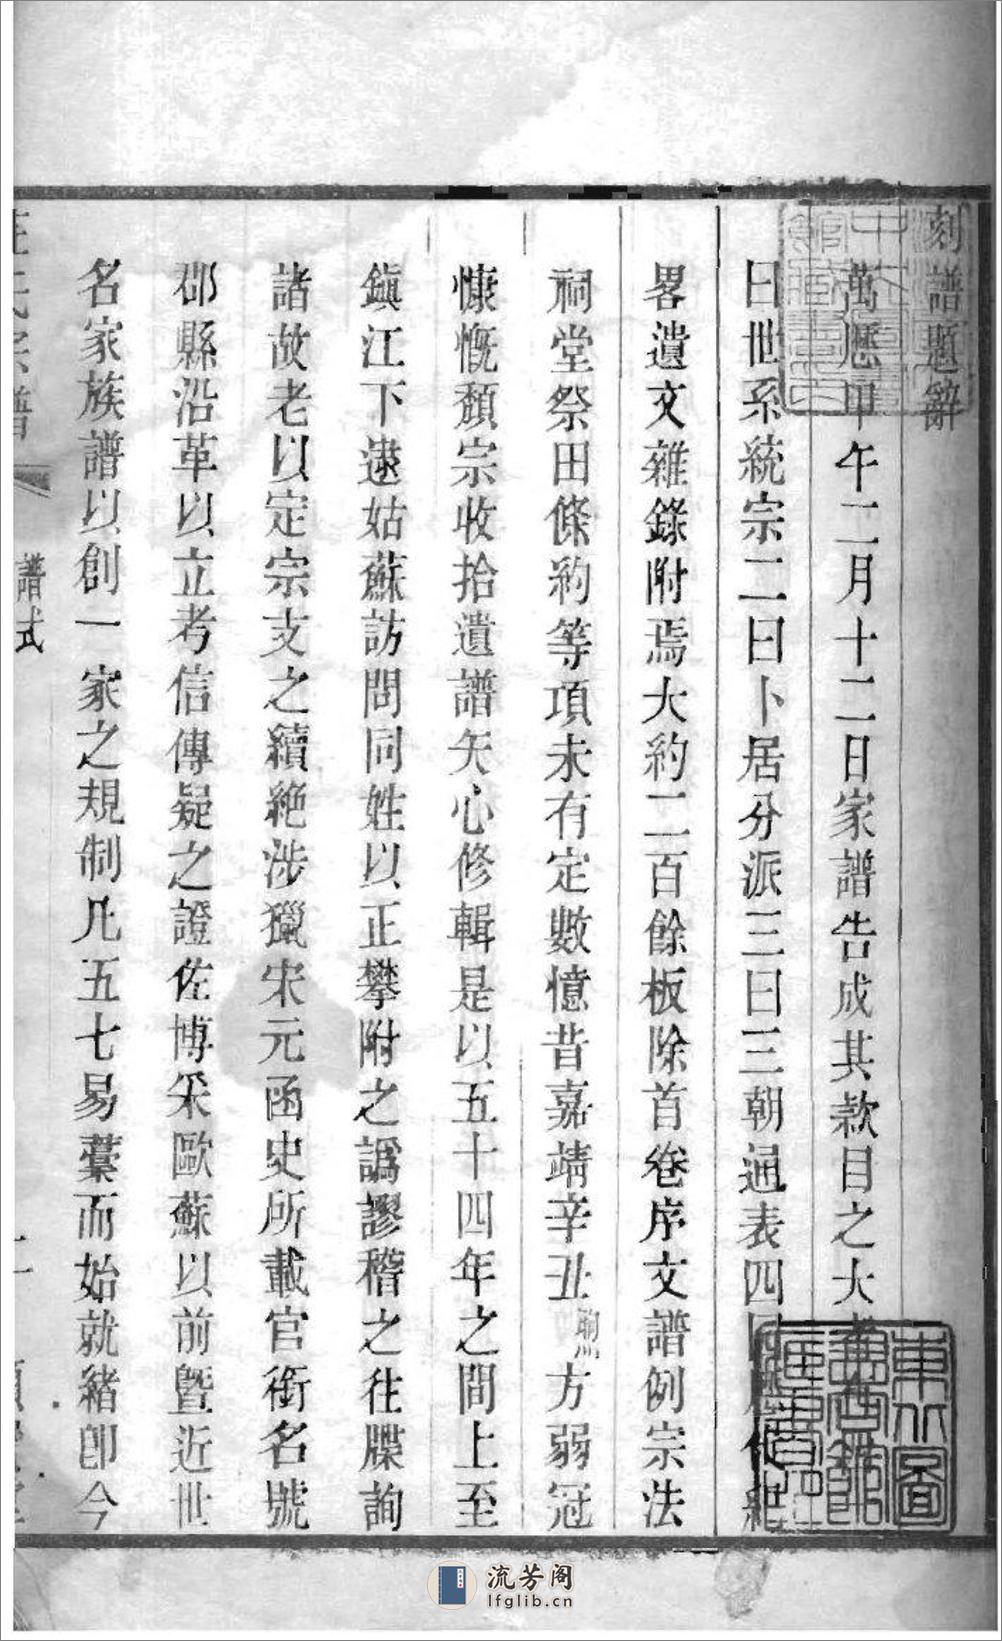 刻譜題辭
萬歷甲午二月十二日家譜告成其款目之大者有四一
曰世系統宗二曰卜居分派三曰三朝通表四曰歷代紀
畧遺文雜錄附焉大約二百餘板除首卷序文譜例宗法
祠堂祭田條約等項未有定數憶昔嘉靖辛丑方弱冠
慷慨頽宗收拾遺譜矢心修輯是以五十四年之間上至
鎭江下逮姑蘇訪問同姓以正攀附之譌謬稽之往牒詢
諸故老以定宗支之續絶涉獵宋元函史所載官銜名號
郡縣沿革以立考信傳疑之證佐博采歐蘇以前曁近世
名家族譜以創一家之規制凡五七易藁而始就緒卽今
譜式
流芳阁
lfglib.cn